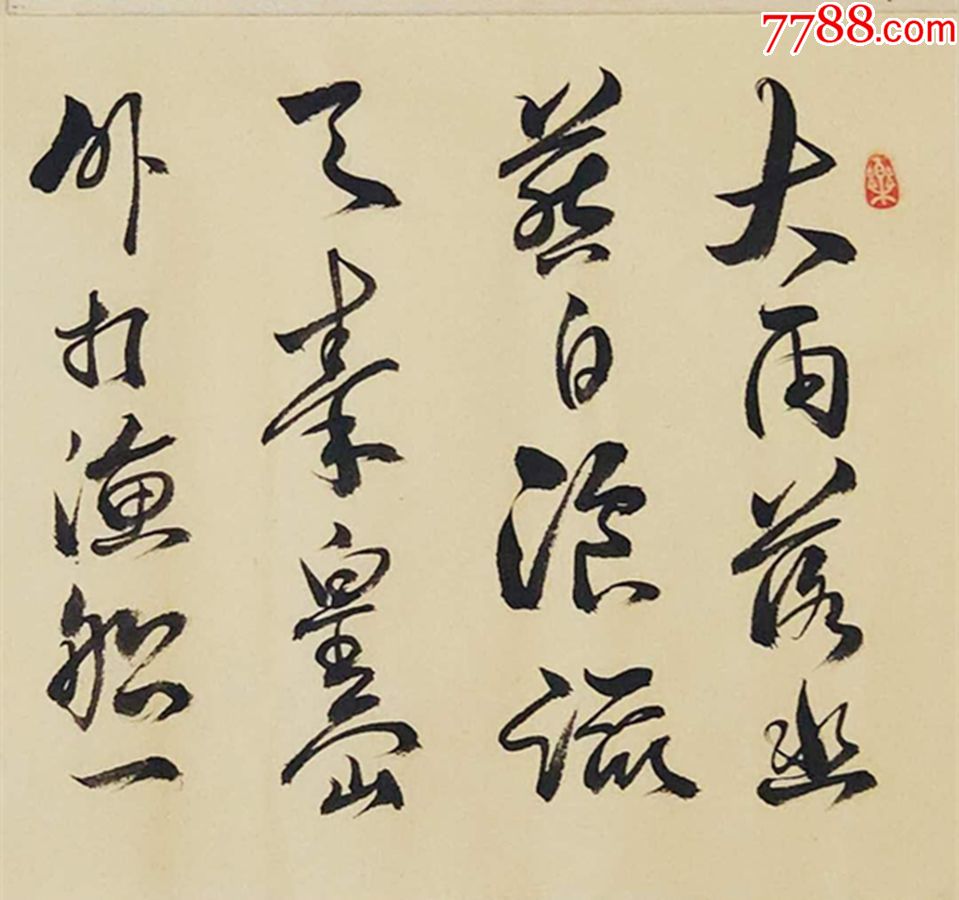 大雨落幽
燕白浪滔
天秦皇島
外打漁船一
7788.com